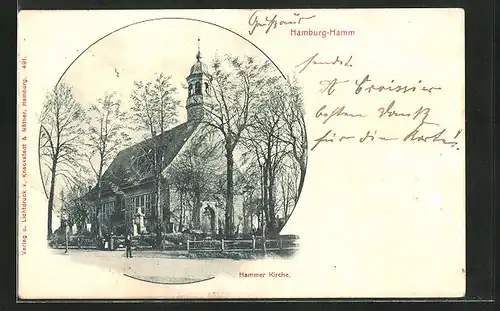 Hamburg-Hamm
Gruß aus
sendet
besten Dank
für die Karte!
Hammer Kirche.
Verlag u. Lichtdruck v. Knackstedt & Näther, Hamburg. 491.